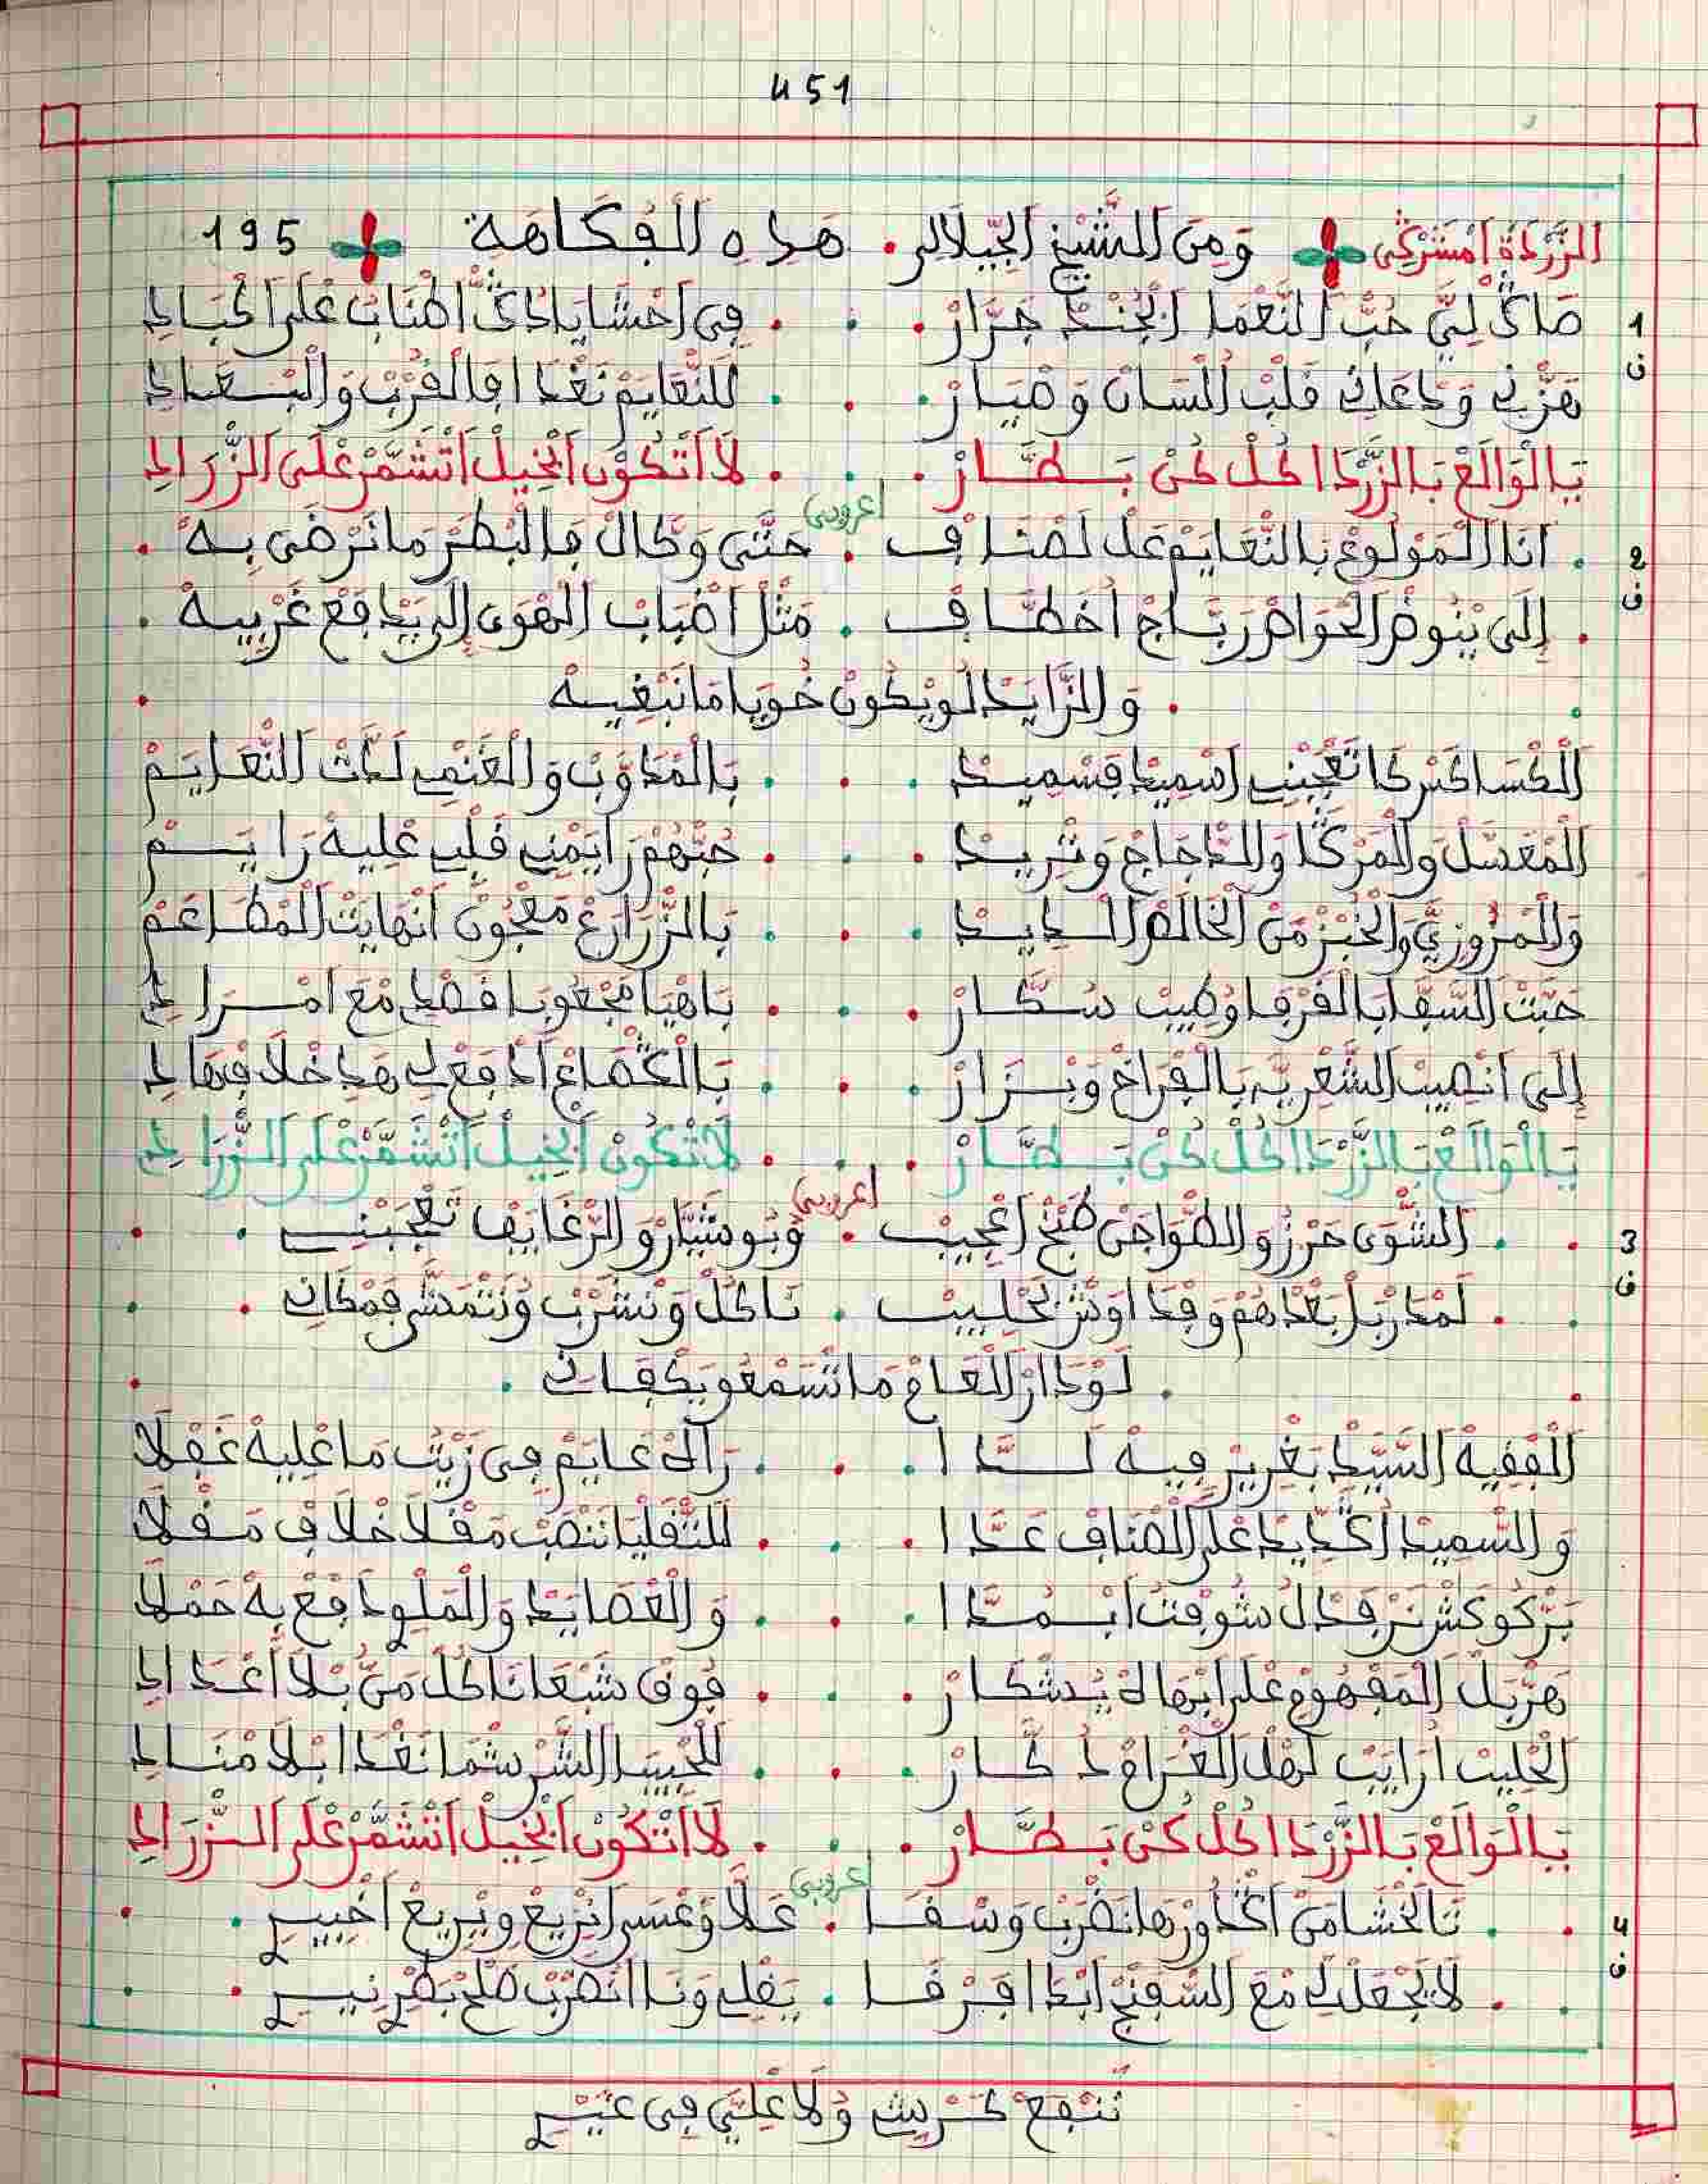 451
الزَّرْدَةْ امْشَرْكِي وَمِنَ الشَّيْخِ الْجِّيلَالِي. هَذِهِ الْفُكَاهَةِ 195
1 صَاڭْ لِيَّ حُبّْ النَّعْمَا ابْجُنْدْ جَرَّارْ . . . فِي احْشَايَا دَڭّْ اطْنَابُ عْلَى الْجْبَادِ
ف هَزّْنِي وَدْعَانِي قَلْبْ اللّْسَانْ وَصْيَارْ . . . لَلنّْعَايَمْ نَغْدَا فَالْقُرْبْ وَالْبْعَادِ
يَالْوَالَعْ بَالزَّرْدَا كُلْ كُنْ بَطَّارْ . . . لَا اتْكُونْ ابْخِيلْ اتْشَمَّرْ عْلَى الزّْرَادِ
اعروبي
2 . انَا الْمَوْلُوعْ بَالنّْعَايَمْ عَدْ لَصْنَافْ . حَتَّى وَكَّالْ فَالْبْطَرْ مَا نَرْضَى بِهْ .
ف . إِلَى يْنُوضْ الْحْوَاضْرْ رَبَّاجْ اخْطَّافْ . مَثْلْ اضْبَابْ الْهْوَى إِلَى يَدْفَعْ غَرْبِيهْ .
. وَالزَّايَدْ لُو يْكُونْ خُويَا مَا نَبْغِيهْ .
الْكْسَاكَسْ كَا تَعْجَبْنِي اسْمِيدْ فَسْمِيدْ . . . بَالْمْدَوَّبْ وَالْغَنْمِي لَذّْتْ النّْعَايَمْ
الْمْعَسَّلْ وَالْمْرَڭَّا وَالدّْجَاجْ وَتْرِيدْ . . . حُبّْهُمْ رَايَمْنِي قَلْبِي عْلِيهْ رَايَمْ
وَالْمْرُوزِيَّ وَالْخُبْزْ مَنْ الْخَالَصْ الْدِيدْ . . . بَالزّْرَارَعْ مَعْجُونْ انْهَايْتْ الْمْطَاعَمْ
حَبّْتْ السّْفَّا بَالْقَرْفَا وُطِيبْ سُكَّارْ . . . بَاهْيَا مَجْعُوبَا فَضْدِ مْعَ امْرَادِ
إِلَى انْصِيبْ الشّْعْرِيَّ بَالْفْرَاخْ وَبْزَارْ . . . بَالْڭْصَاعْ ادْفَعْ لِي هَدِ خْلَافْ هَادِ
يَالْوَالَعْ بَالزَّرْدَا كُلْ كُنْ بَطَّارْ . . . لَا تْكُونْ ابْخِيلْ اتْشَمَّرْ عْلَى الزّْرَادِ
اعروبي
3 . الشّْوَى حَرْزُ وَالطّْوَاجَنْ طَبْخْ اعْجِيبْ . وَبُومَثْيَارْ وَالرّْغَايَفْ تَعْجَبْنِي .
ف . لَمْدَرْبَلْ بَعْدْهُمْ وَقْدَاوَشْ بَحْلِيبْ . نَاكُلْ وَنْشْرَبْ وُنَتْمَشَّى فَمْكَانِي .
. لَوْدَارْ الْعَامْ مَا نَسَّمْعُو يَكْفَانِي .
الْفْقِيهْ السَّيّْدْ بَغْرِيرْ فِيهْ لَدَّا . . . رَاهْ عَايَمْ فِي زِيتْ مَا عْلِيهْ غَفْلَا
وَالسّْمِيدْ اڭْدِيدْ عْلَى الْصْنَافْ عَدَّا . . . لَلتّْقَلْيَا نَنْصَبْ مَقْلَا خْلَافْ مَقْلَا
بَرْكُوكَشْ نَرْفَدْ لُ شُوفْتُ ابْمُدَّا . . . وَالْعْصَايَدْ وَالْمَلْو دَافَعْ بِهْ حَمْلَا
هَرْبَلْ الْمَفْهُومْ عْلَى ابْهَاهْ يُشْكَارْ . . . فُوقْ شَبْعَا نَاكُلْ مَنُّ بْلَا اعْدَادِ
الْحْلِيبْ ارَايَبْ لَهْلْ الْغْرَامْ دُكَّارْ . . . لَلْحْبِيبَا الشّْرْشْمَا نَغْدَا ابْلَا مْنَادِ
يَالْوَالَعْ بَالزَّرْدَا كُلْ كُنْ بَطَّارْ . . . لَا اتْكُونْ ابْخِيلْ اتْشَمَّرْ عْلَى الزّْرَادِ
اعروبي
4 . تَالْخْشَا مَنْ اڭْدَاوَرْهَا نَضْرَبْ وَسْقَا . عَلَّا وَعْسَى انْرِيعْ وِيْرِيعْ اخْبِيرِي .
ف . لَا يَجْعَلْ لِي مْعَ السّْفَنْجْ ابْدَا فَرْقَا . يَقْلِي وَنَا انْضْرَبْ صُلْحْ بَضْرْنِيرِي .
نَنْفَعْ كَرْشِي وُلَا عْلِيَّ فِي غِيرِي